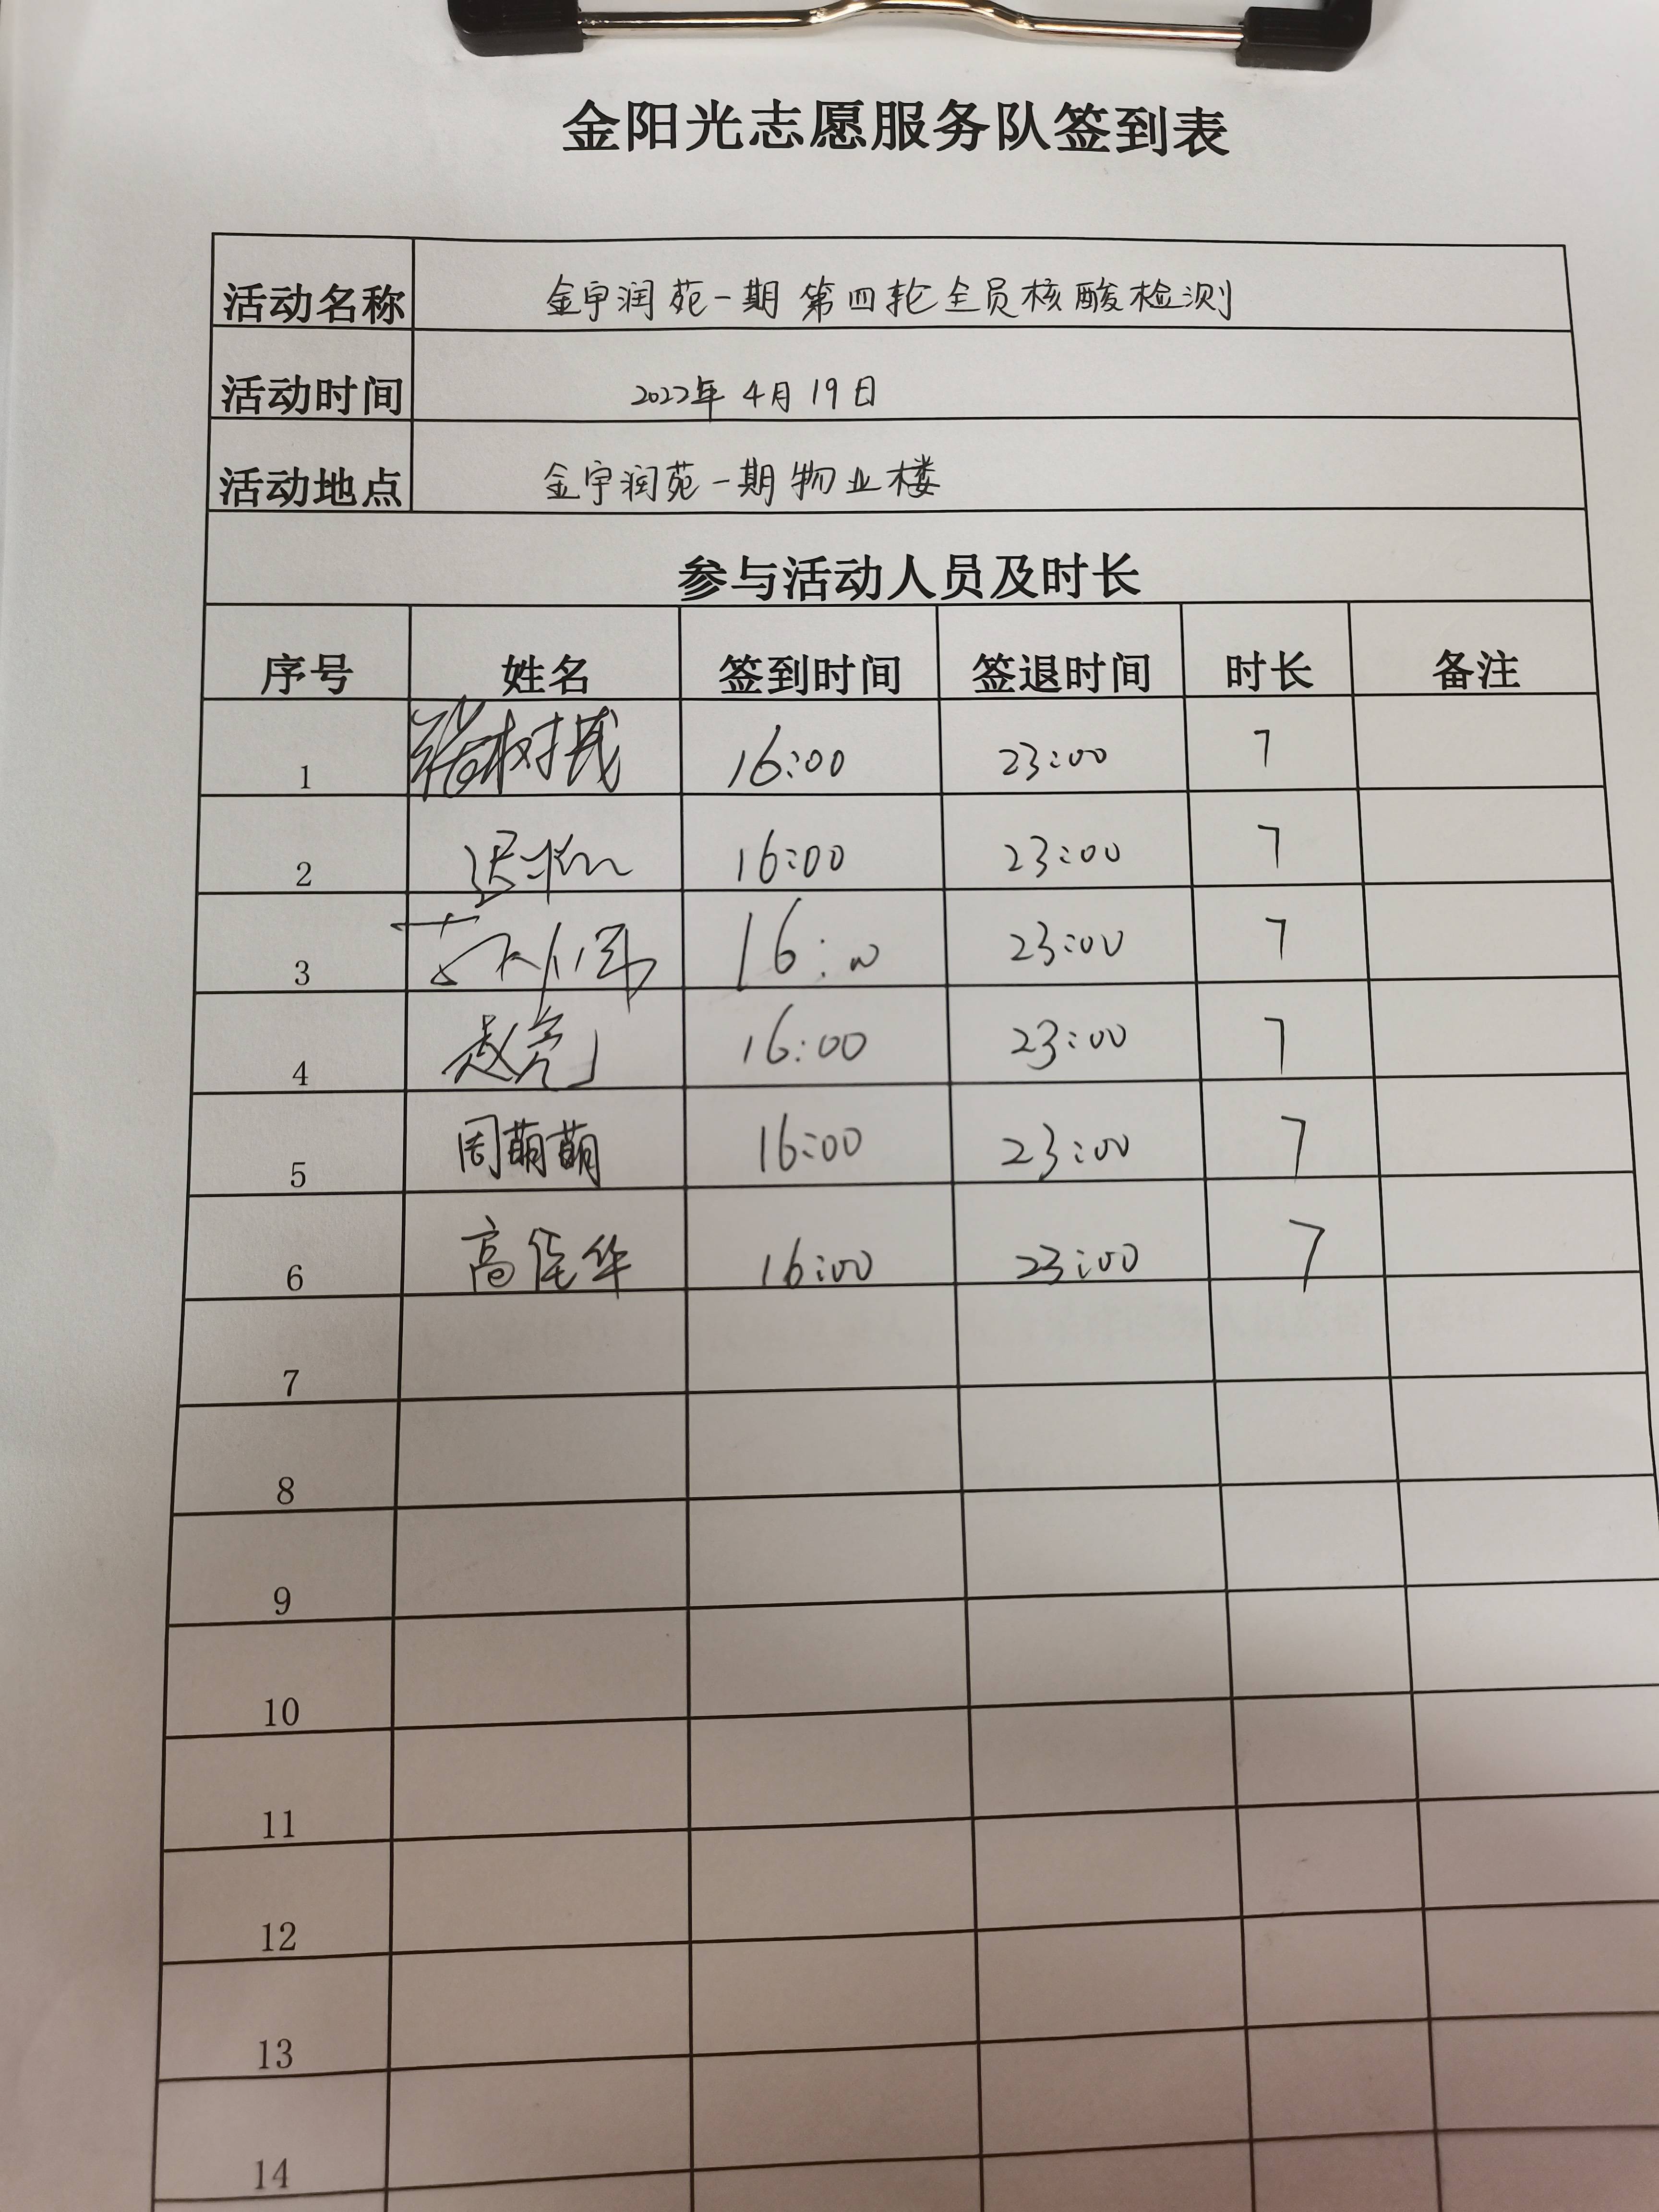 金阳光志愿服务队签到表
活动名称 金宇润苑一期第四轮全员核酸检测
活动时间 2022年4月19日
活动地点 金宇润苑一期物业楼
参与活动人员及时长
序号 姓名 签到时间 签退时间 时长 备注
1 张树 16:00 23:00 7
2 迟 16:00 23:00 7
3 16:00 23:00 7
4 赵亮 16:00 23:00 7
5 周萌萌 16:00 23:00 7
6 高佳华 16:00 23:00 7
7
8
9
10
11
12
13
14